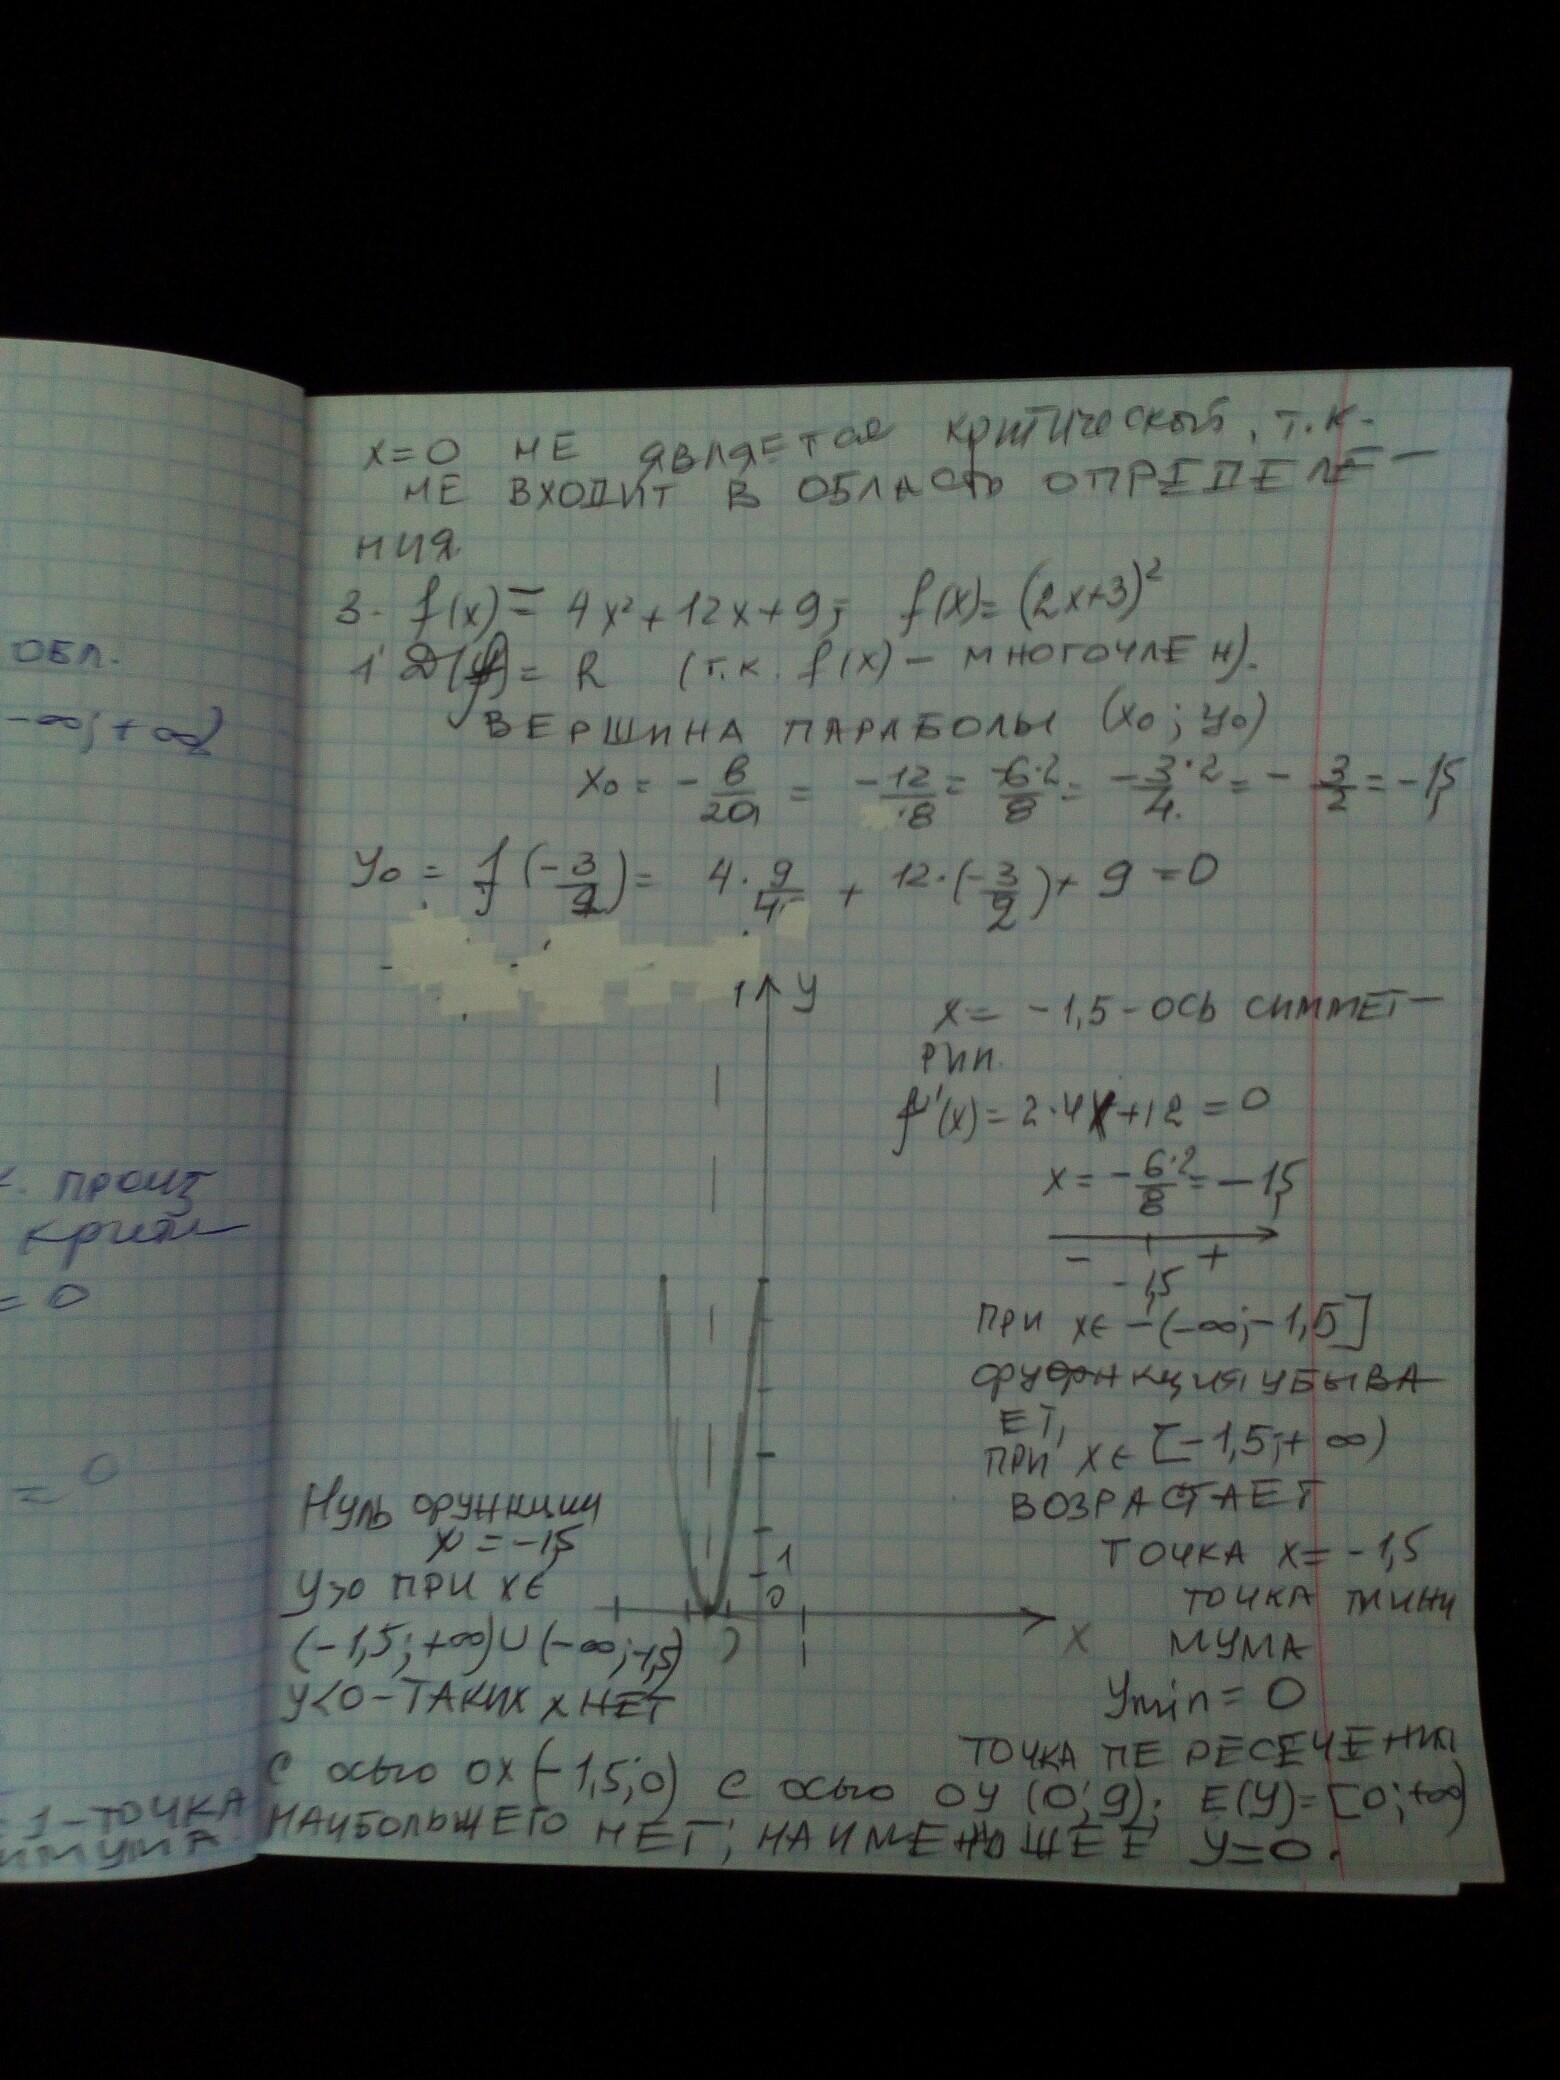 x=0 НЕ ЯВЛЯЕТСЯ критической, т.к.
НЕ ВХОДИТ В ОБЛАСТЬ ОПРЕДЕЛЕ-
НИЯ.
3. f(x) = 4x² + 12x + 9; f(x) = (2x+3)²
1 D(f) = R (т.к. f(x) - многочлен).
ВЕРШИНА ПАРАБОЛЫ (x₀; y₀)
x₀ = - в/2a = -12/8 = -6·2/8 = -3·2/4 = - 3/2 = -1,5
y₀ = f(-3/2) = 4·9/4 + 12·(-3/2) + 9 = 0
1 y
x = -1,5 - ОСЬ СИММЕТ-
РИИ.
f'(x) = 2·4x + 12 = 0
x = -6·2/8 = -1,5
- +
-1,5
ПРИ x∈ -(-∞; -1,5]
функция УБЫВА
ЕТ,
ПРИ x∈ [-1,5; +∞)
ВОЗРАСТАЕТ
ТОЧКА x = -1,5
ТОЧКА МИНИ
МУМА
ymin = 0
1
0
x
1
Нуль функции
x = -1,5
y>0 ПРИ x∈
(-1,5; +∞)∪(-∞; -1,5)
y<0 - ТАКИХ x НЕТ
ТОЧКА ПЕРЕСЕЧЕНИЯ
С осью OX (-1,5; 0) С осью OY (0; 9); E(y) = [0; +∞)
НАИБОЛЬШЕГО НЕТ, НАИМЕНЬШЕЕ y=0.
ОБЛ.
-∞; +∞)
к. произ
крит
= 0
= 0
1 - ТОЧКА
ИМУМА